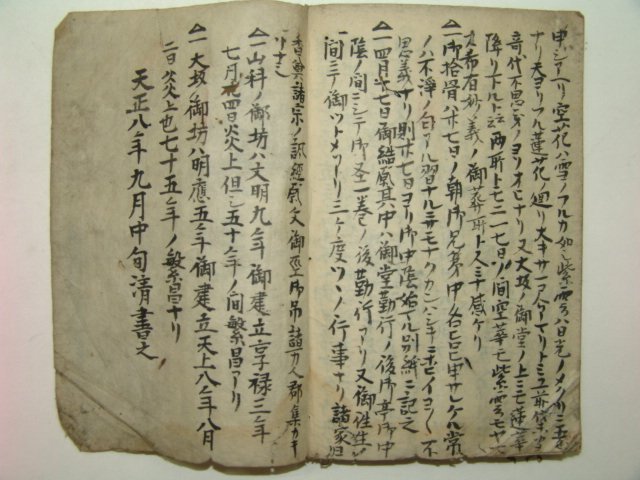 申シアヘリ空花ハ雪ノフルカ如ミ紫雲ハ日光ノメクリニ五色
ナリ天ヨリフル蓮花ノ廻リ大キサ
奇代不思議ノヨソオヒナリ又大坂ノ御堂ノ上ニモ蓮華
降リ下ルト云両所トモ二一七日ノ間空華モ紫雲モヤマ
ス希有妙義ノ御葬所トスミナ感ケリ
△一御拾骨ハ廿七日ノ朝御兄弟中各
ノハ不浄ノ匂アル習ナルニサモナクカンハシキニホヒイヨ〱不
思議ナリ則廿七日ヨリ御中陰始マル別紙ニ記之
△一四月十七日御結願其中ハ御堂勤行ノ後御亭御中
陰ノ間ニシテ御聖一巻ノ後勤行アリ又御往生ノ
間ニテ御ツトメアリ三ケ度ツヽノ行事ナリ諸家但
香奠諸宗ノ諷経願文御
ハナシ
△一山科ノ御坊ハ文明九年御建立享禄三年
七月廿四日炎上但シ五十年ノ間繁昌アリ
△一大坂御坊ハ明應五年御建立天上八年八月
二日炎上也七十五年ノ繁昌ナリ
天正八年九月中旬清書之